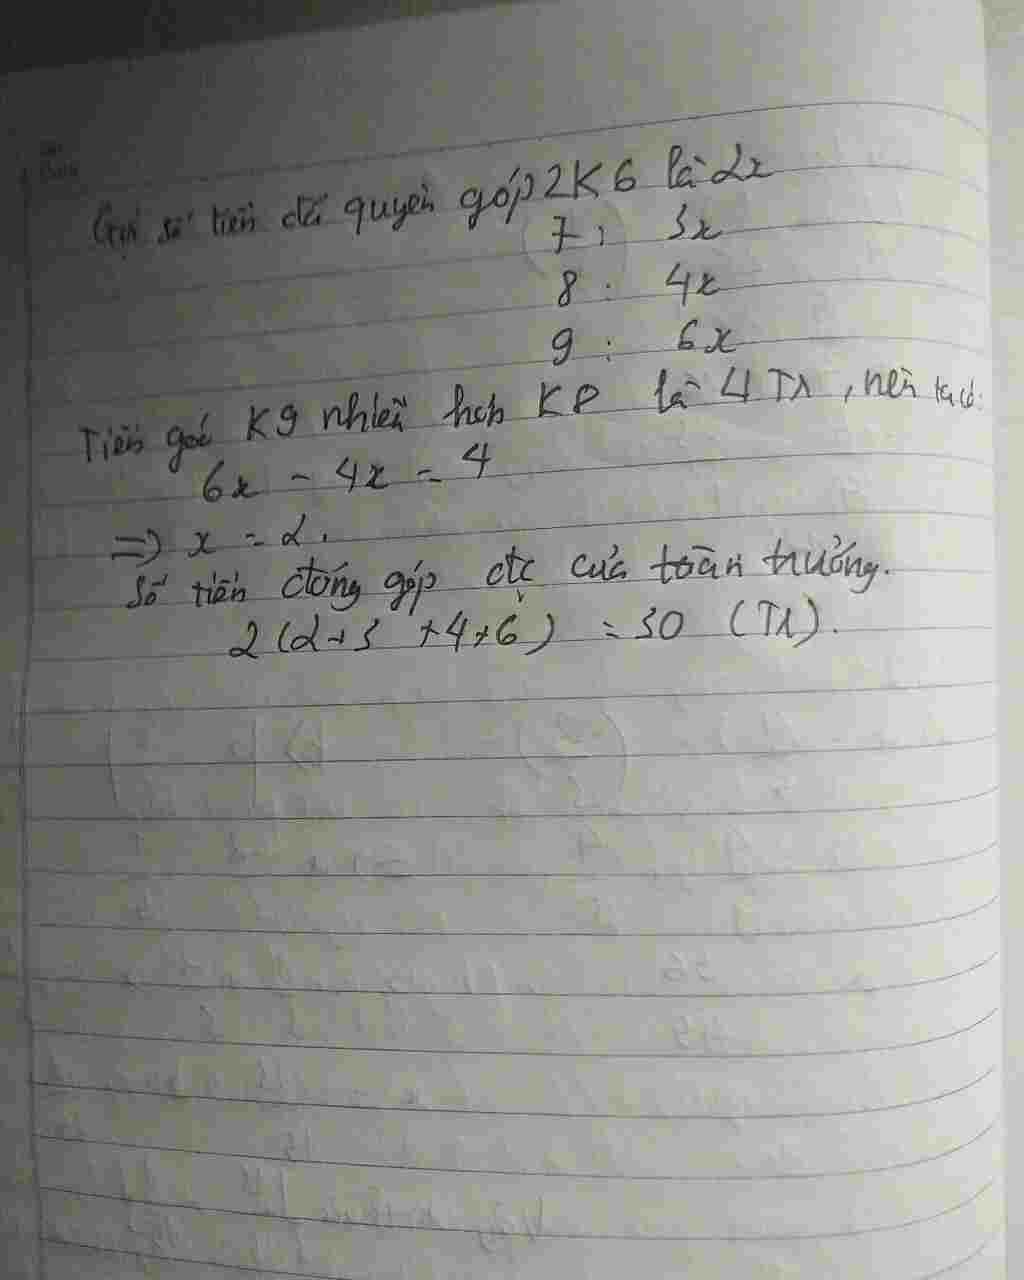 Gọi số tiền đã quyên góp 2K6 là 2x
7: 3x
8: 4x
9: 6x
Tiền góc K9 nhiều hơn K8 là 4 Tr, nên ta có:
6x - 4x = 4
=> x = 2.
Số tiền đóng góp đc của toàn trường.
2(2+3+4+6) = 30 (Tr).